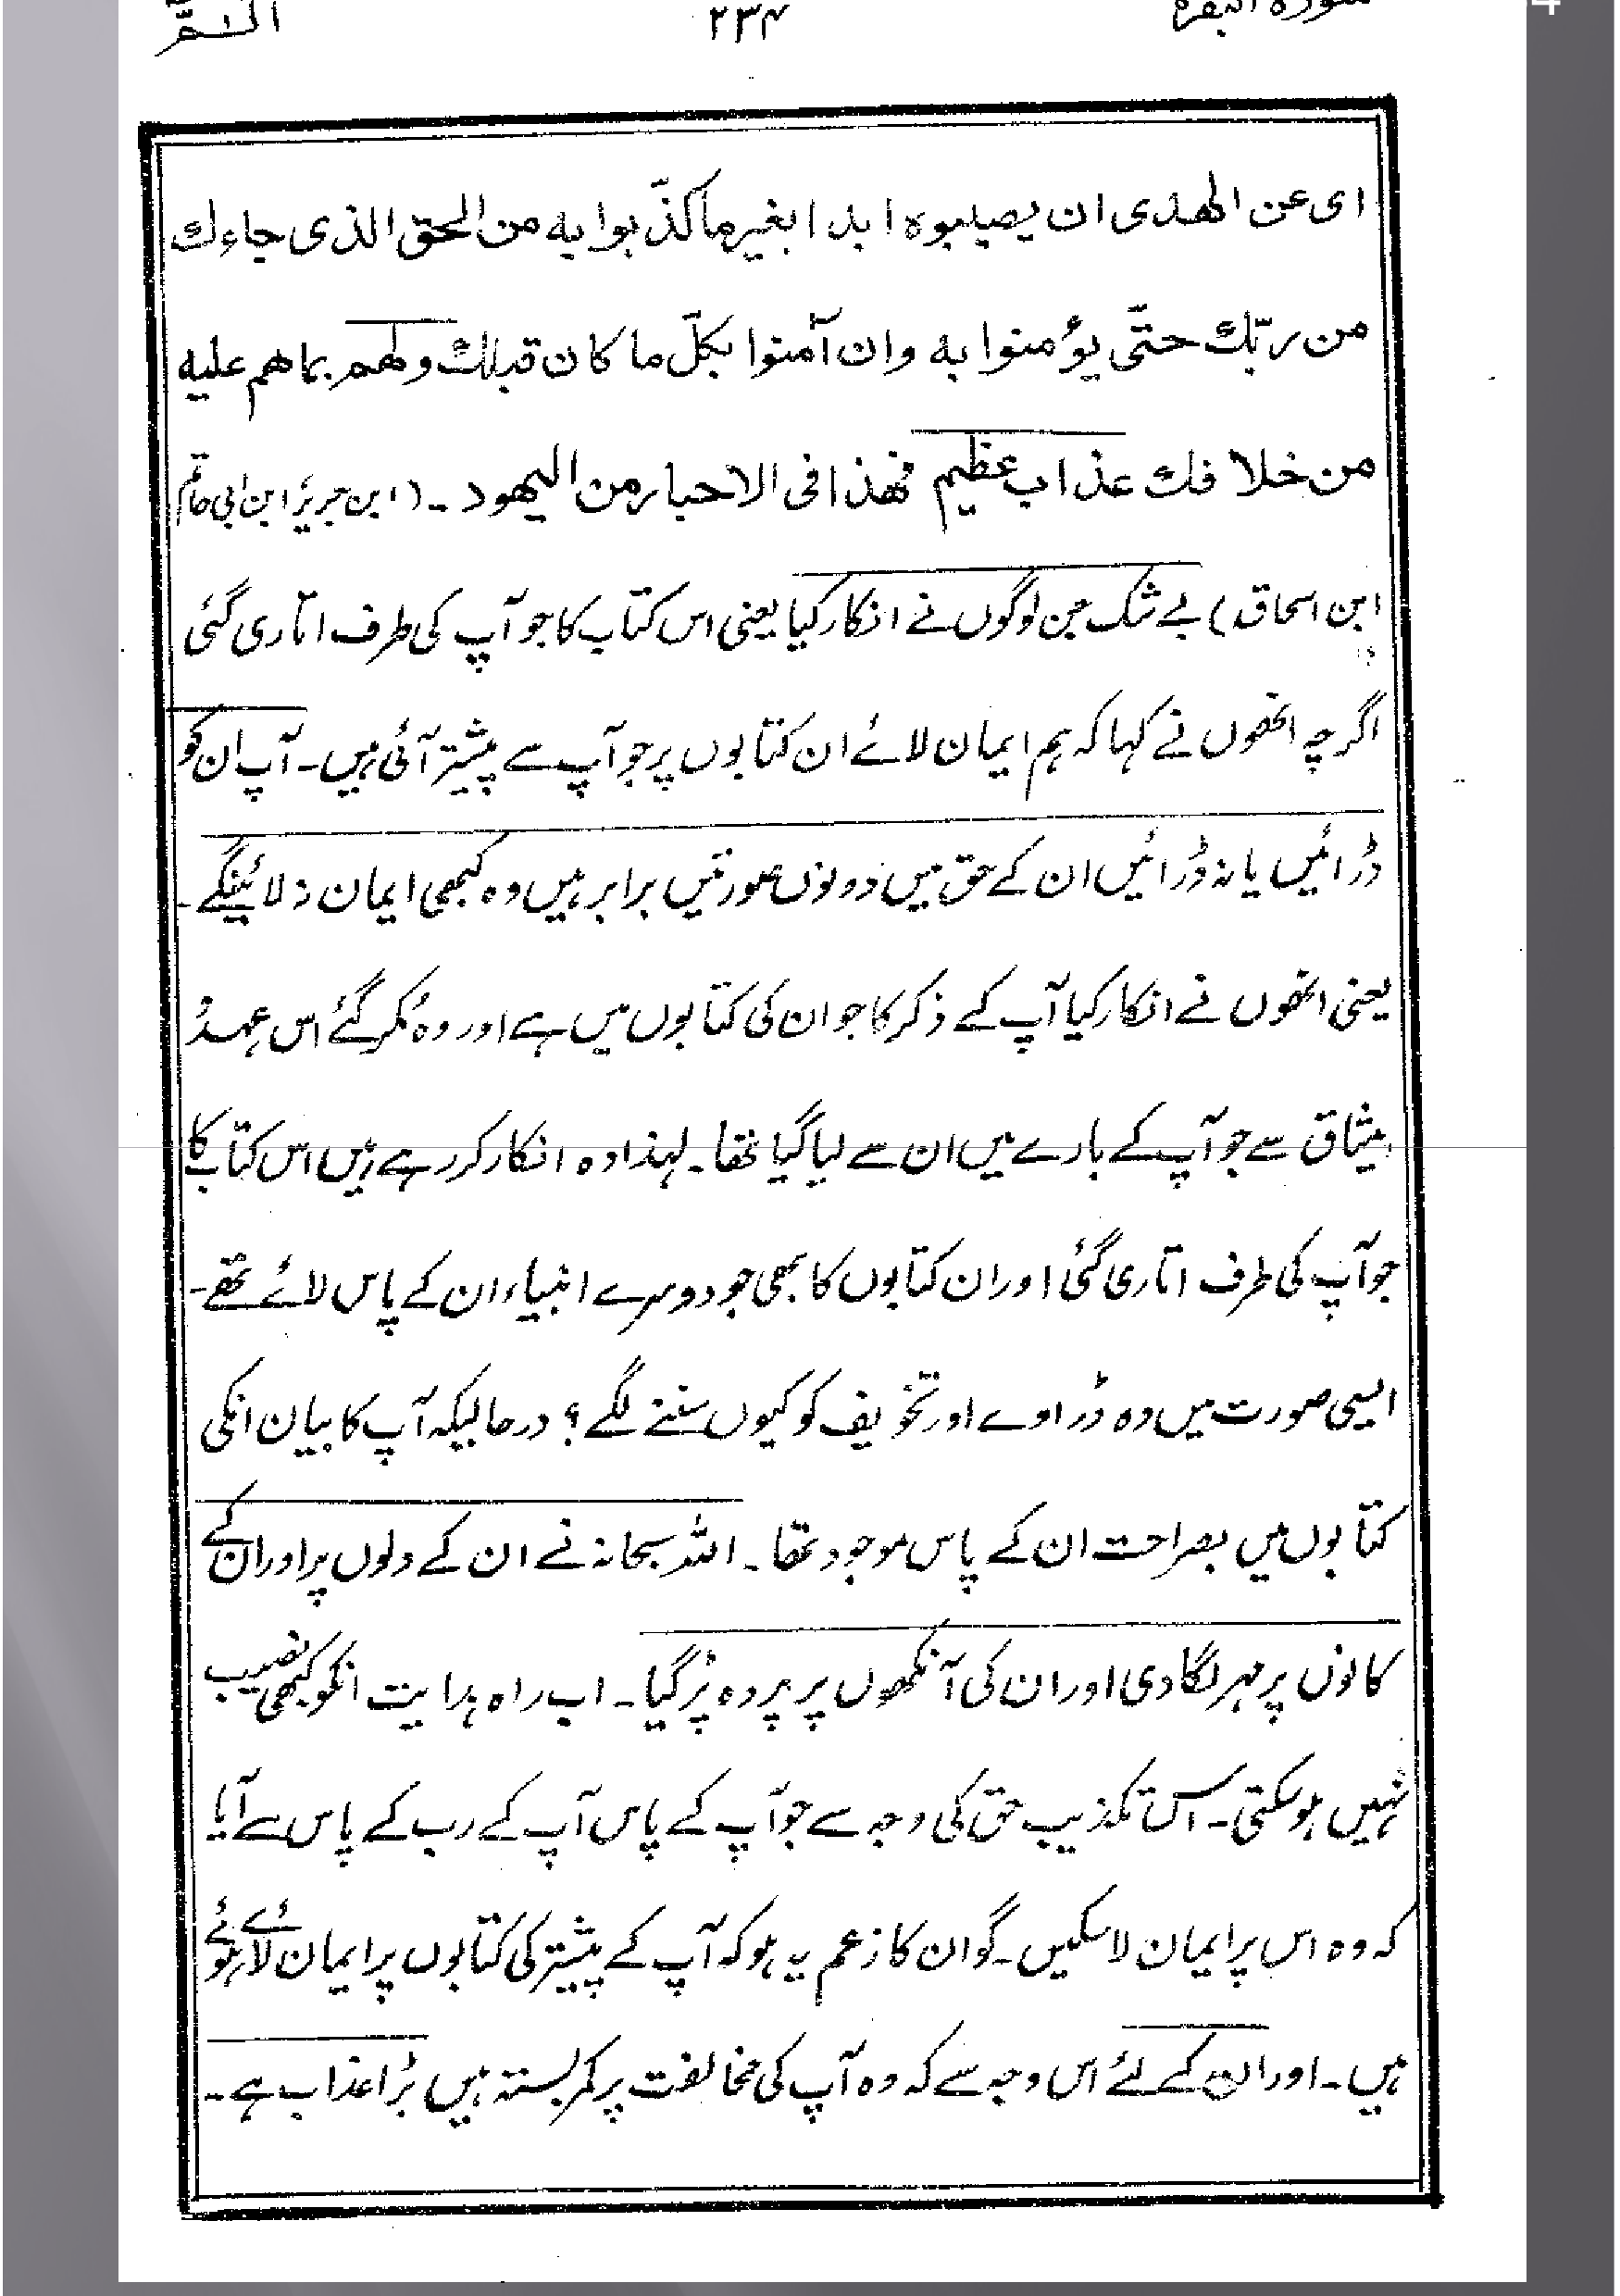 سورۃ البقرہ ۲۳۴ الٓمّٓ
ای عن الھدی ان یصیبوہ ابدا بغیر ما کذّبوا بہ من الحق الذی جاءك
من ربّك حتّی یؤمنوا بہ وان آمنوا بکلّ ما کان قبلك ولھم بما ھم علیہ
من خلافك عذاب عظیم فھذا فی الاحبار من الیھود ۔ (ابن جریر، ابن ابی حاتم
ابن اسحاق) بے شک جن لوگوں نے انکار کیا یعنی اس کتاب کا جو آپ کی طرف اتاری گئی
اگرچہ انھوں نے کہا کہ ہم ایمان لائے ان کتابوں پر جو آپ سے پیشتر آئی ہیں۔ آپ ان کو
ڈرائیں یا نہ ڈرائیں ان کے حق میں دونوں صورتیں برابر ہیں وہ کبھی ایمان نہ لائینگے۔
یعنی انھوں نے انکار کیا آپ کے ذکر کا جو ان کی کتابوں میں ہے اور وہ مُکر گئے اس عہد و
میثاق سے جو آپ کے بارے میں ان سے لیا گیا تھا۔ لہذا وہ انکار کر رہے ہیں اس کتاب کا
جو آپ کی طرف اتاری گئی اور ان کتابوں کا بھی جو دوسرے انبیاء ان کے پاس لائے تھے۔
ایسی صورت میں وہ ڈراوے اور تخویف کو کیوں سننے لگے؟ درحالیکہ آپ کا بیان انکی
کتابوں میں بصراحت ان کے پاس موجود تھا۔ اللہ سبحانہ نے ان کے دلوں پر اور ان کے
کانوں پر مہر لگا دی اور ان کی آنکھوں پر پردہ پڑ گیا۔ اب راہ ہدایت انکو کبھی نصیب
نہیں ہو سکتی۔ اس تکذیب حق کی وجہ سے جو آپ کے پاس آپ کے رب کے پاس سے آیا
کہ وہ اس پر ایمان لا سکیں۔ گو ان کا زعم یہ ہو کہ آپ کے پیشتر کی کتابوں پر ایمان لائے ہوئے
ہیں۔ اور ان کے لئے اس وجہ سے کہ وہ آپ کی مخالفت پر کمر بستہ ہیں بڑا عذاب ہے۔